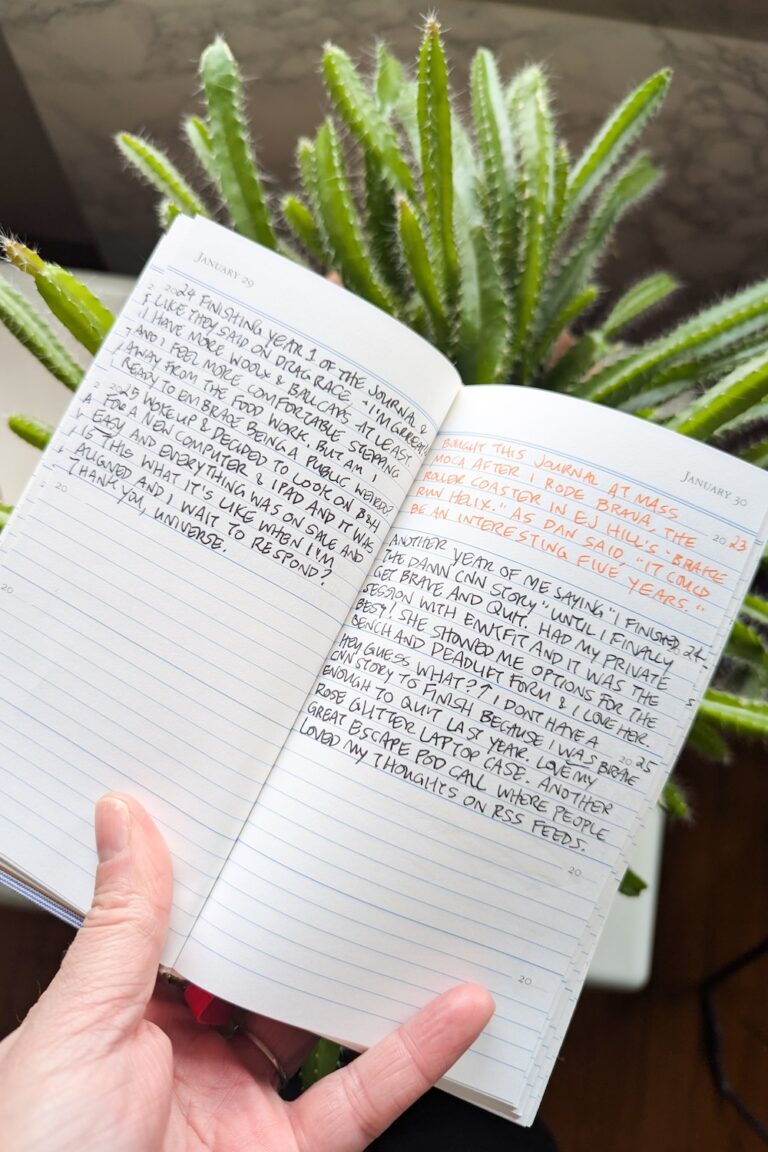 JANUARY 29
2024 FINISHING YEAR 1 OF THE JOURNAL &
LIKE THEY SAID ON DRAG RACE, "I'M GREAT!"
I HAVE MORE WOOL & BALLCAPS AT LEAST
AND I FEEL MORE COMFORTABLE STEPPING
AWAY FROM THE FOOD WORK. BUT AM I
READY TO EMBRACE BEING A PUBLIC WEIRDO?
2025 WOKE UP & DECIDED TO LOOK ON B&H
FOR A NEW COMPUTER & IPAD AND IT WAS
EASY AND EVERYTHING WAS ON SALE AND
IS THIS WHAT IT'S LIKE WHEN I'M
ALIGNED AND I WAIT TO RESPOND?
THANK YOU, UNIVERSE.
20
20
JANUARY 30
BOUGHT THIS JOURNAL AT MASS
MOCA AFTER I RODE BRAVA, THE
ROLLER COASTER IN EJ HILL'S "BRAKE
RUN HELIX." AS DAN SAID, "IT COULD
BE AN INTERESTING FIVE YEARS."
2023
ANOTHER YEAR OF ME SAYING "I FINISHED
THE DAMN CNN STORY" UNTIL I FINALLY
GET BRAVE AND QUIT. HAD MY PRIVATE
SESSION WITH EWKFIT AND IT WAS THE
BEST! SHE SHOWED ME OPTIONS FOR THE
BENCH AND DEADLIFT FORM & I LOVE HER.
24
HEY GUESS WHAT? ↑ I DON'T HAVE A
CNN STORY TO FINISH BECAUSE I WAS BRAVE
ENOUGH TO QUIT LAST YEAR. LOVE MY
ROSE GLITTER LAPTOP CASE. ANOTHER
GREAT ESCAPE POD CALL WHERE PEOPLE
LOVED MY THOUGHTS ON RSS FEEDS.
2025
20
20